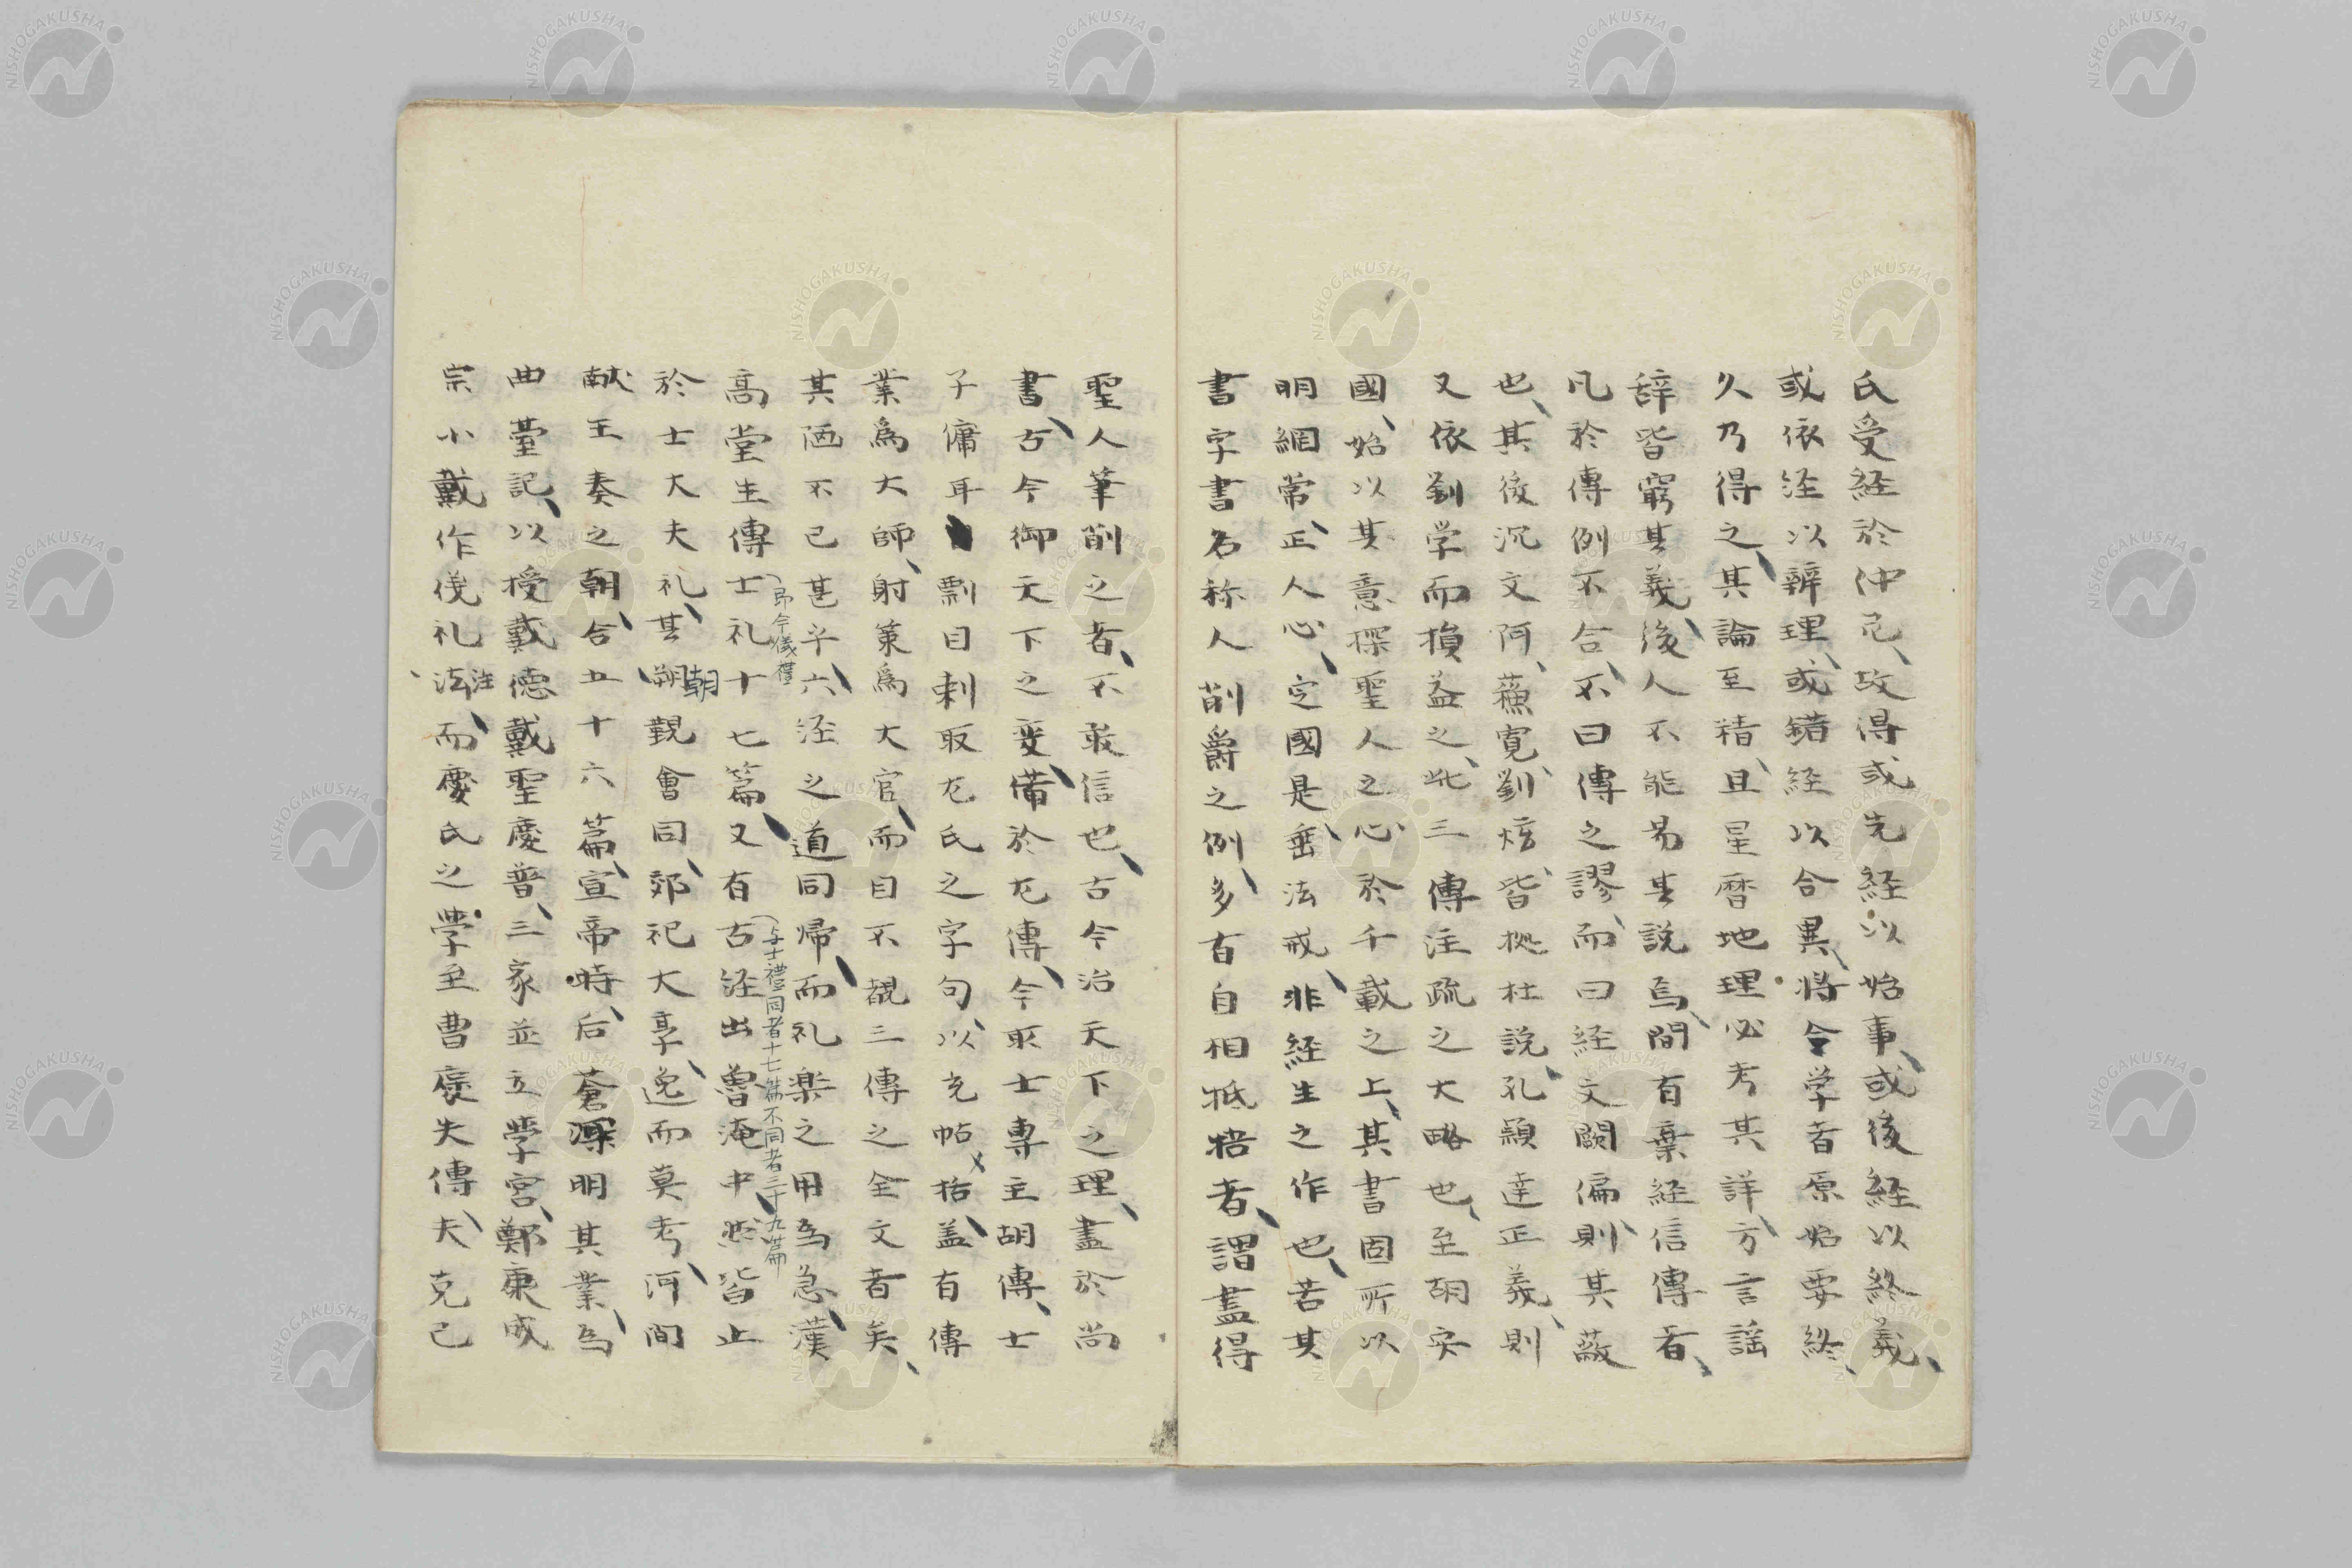 氏受経於仲尼、故得或先経以始事、或後経以終義、
或依経以辨理、或錯経以合異、将令学者原始要終、
久乃得之、其論至精、且星暦地理必考其詳、方言謡
辞皆窮其義、後人不能易其説焉、間有棄経信傳者、
凡於傳例不合、不曰傳之謬、而曰経文闕偏、則其蔽
也、其後沉文阿、蘓寛、劉炫、皆拠杜説、孔穎達正義、則
又依劉学而損益之、此三傳注疏之大略也、至胡安
國、始以其意探聖人之心於千載之上、其書固所以
明網常、正人心、定國是、垂法戒、非経生之作也、若其
書字書名称人削爵之例、多有自相牴牾者、謂盡得
聖人筆削之者、不敢信也、古今治天下之理、盡於尚
書、古今御天下之変、備於尤傳、今取士専主胡傳、士
子傭耳剽目剌取尤氏之字句、以充帖括、盖有傳
業為大師、射策為大官、而目不覩三傳之全文者矣、
其陋不已甚乎、六経之道同帰、而礼楽之用為急、漢
高堂生傳士礼十七篇、又有古経出魯淹中、然皆止
即今儀禮
与士禮同者十七篇不同者三十九篇
於士大夫礼、其朝覲會同、郊祀大享、逸而莫考、河間
朝
献王奏之朝、合五十六篇、宣帝時、后蒼深明其業、為
曲臺記、以授戴徳戴聖慶普、三家並立学宮、鄭康成
宗小戴作儀礼法、而慶氏之学至曹褒失傳、夫克己
注
NISHOGAKUSHA